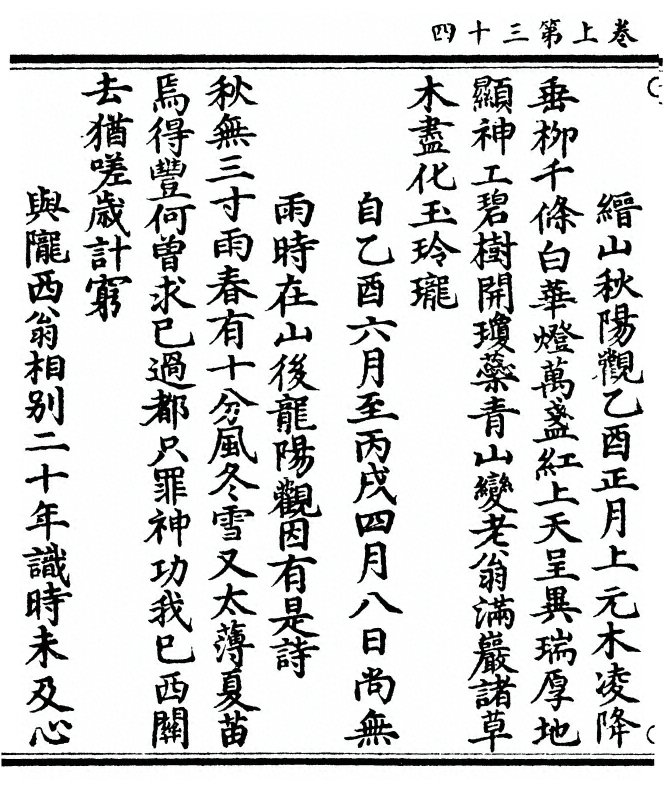 卷上第三十四
縉山秋陽觀乙酉正月上元木凌降
垂柳千條白華燈萬盞紅上天呈異瑞厚地
顯神工碧樹開瓊蘂青山變老翁滿巖諸草
木盡化玉玲瓏
自乙酉六月至丙戌四月八日尚無
雨時在山後龍陽觀因有是詩
秋無三寸雨春有十分風冬雪又太薄夏苗
焉得豐何曾求已過都只罪神功我已西關
去猶嗟歲計窮
與隴西翁相别二十年識時未及心